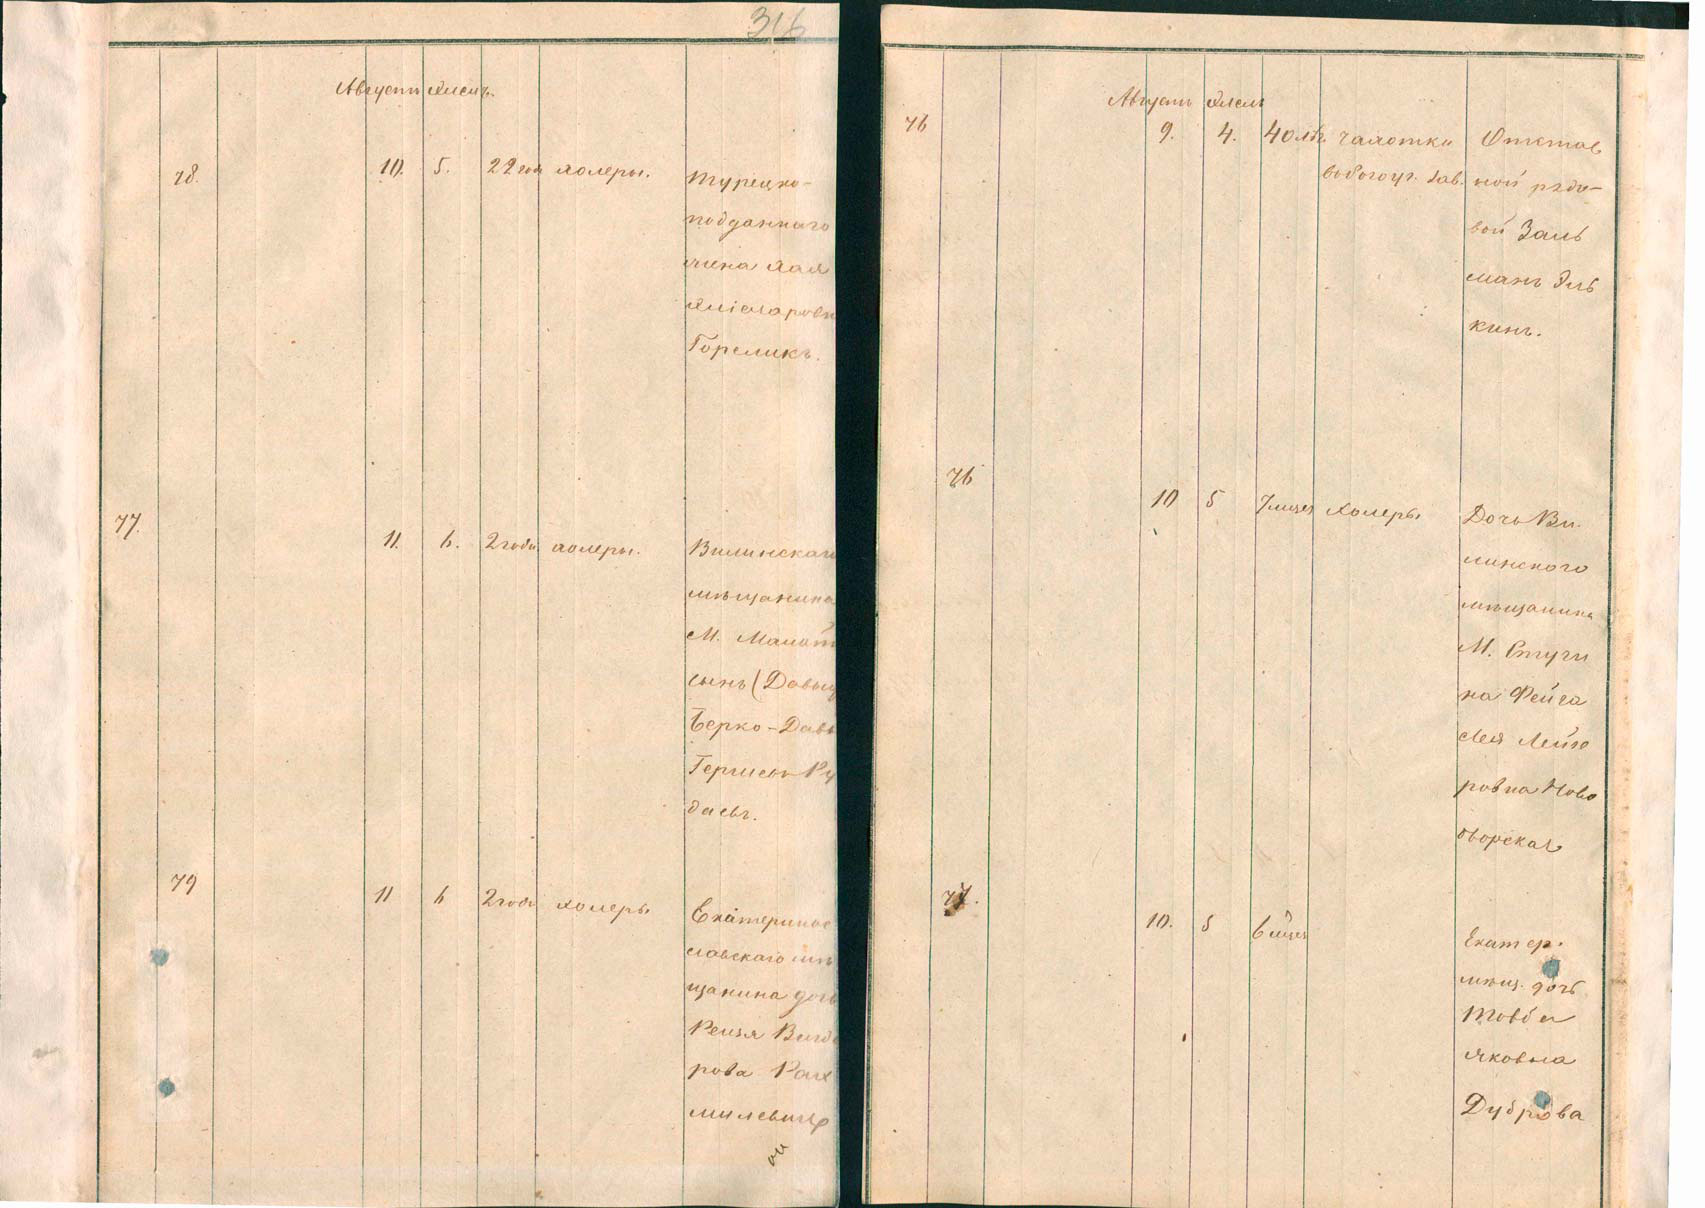 316
Августъ Элелъ.
78. 10. 5. 22 год холеры. Турецко-
подданнаго
жена Хая
Гореликъ.
77. 11. 6. 2 года холеры. Вилинскаго
мѣщанина
М.
сынъ (Давыд
Берко-Давы
Гершевъ Ру
даевъ.
79 11 6 2 года холеры Екатеринос
лавскаго мѣ
щанина дочь
рова Рах
милевичъ
Августъ Элелъ
76 9. 4. 40 лѣт чахотки Отстав
ной рядо-
вой Заль
манъ Эль
кинъ.
76 10 5 7 мѣсяц холеры Дочь Ви-
линского
мѣщанина
М.
на Фейга
Лея Лейзе
ровна Ново
дворская
77. 10. 5 6 мѣсяц Екатер.
мѣщ. дочь
Товба
Яковна
Дуброва